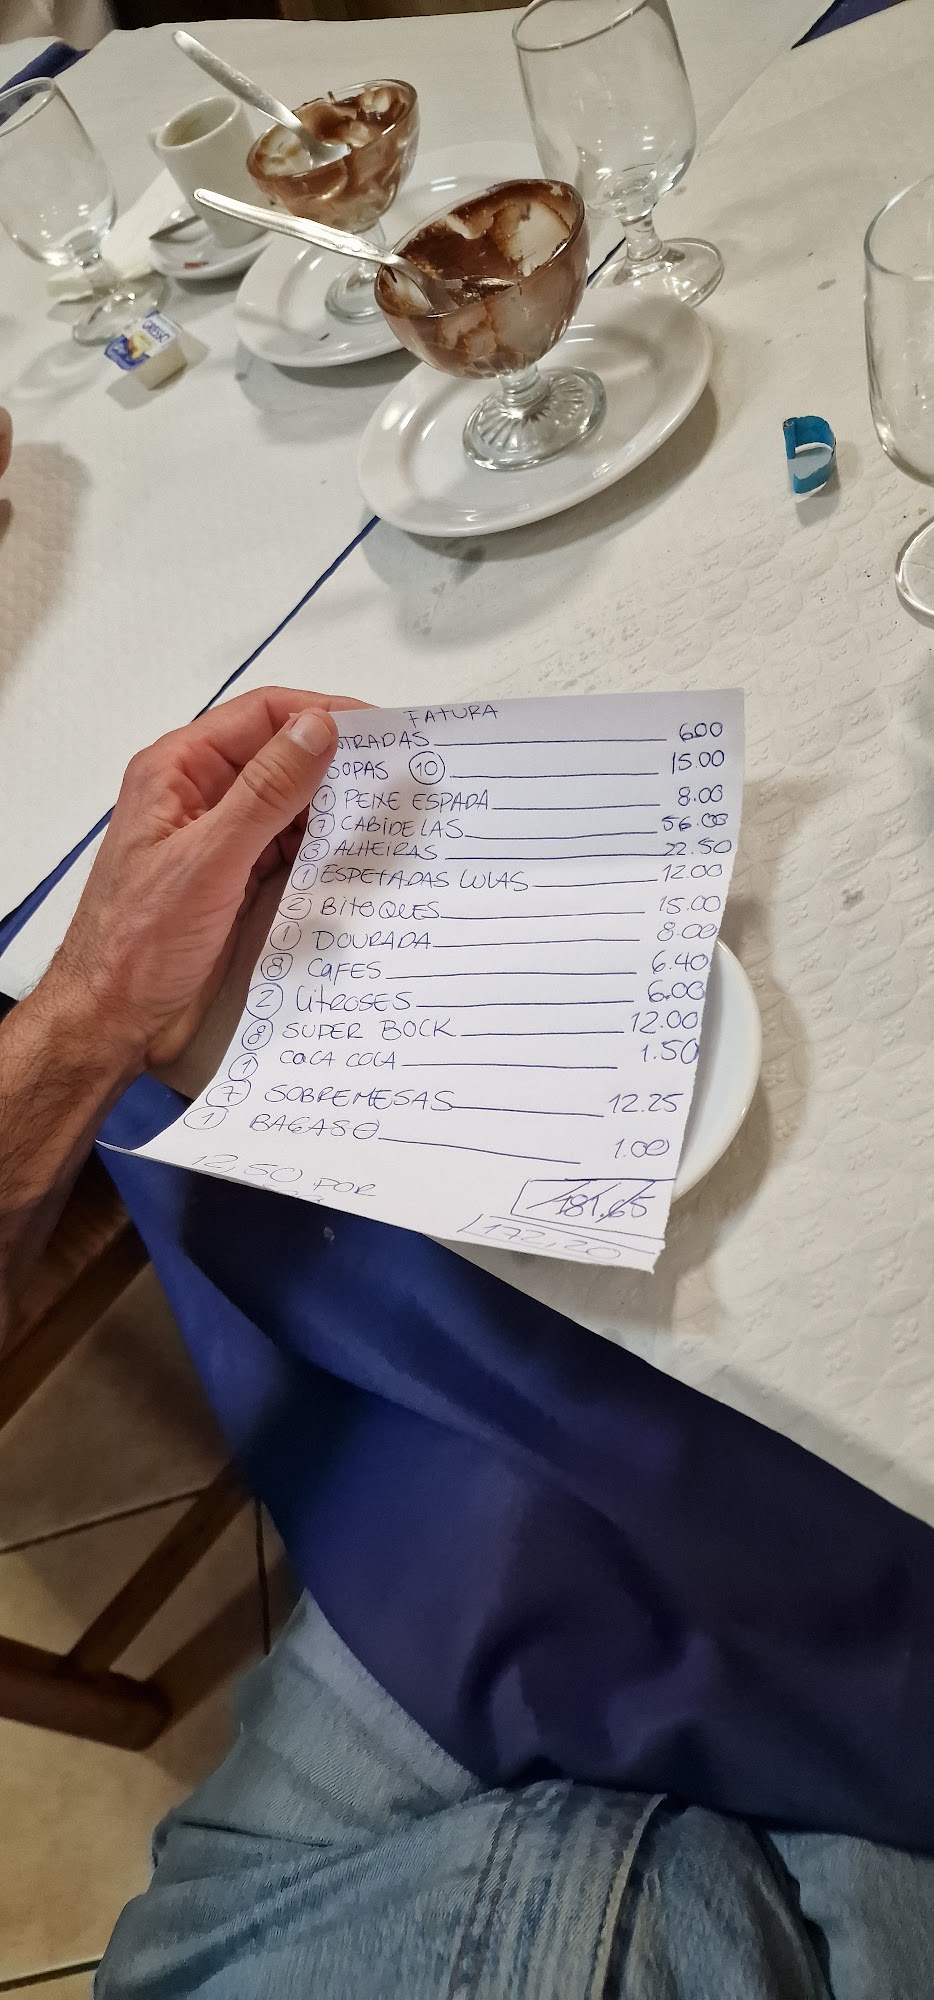 FATURA
NTRADAS 6.00
SOPAS 10 15.00
1 PEIXE ESPADA 8.00
7 CABIDELAS 56.00
3 ALHEIRAS 22.50
1 ESPETADAS LULAS 12.00
2 BITOQUES 15.00
1 DOURADA 8.00
8 CAFES 6.40
2 LITROSES 6.00
8 SUPER BOCK 12.00
1 COCA COLA 1.50
7 SOBREMESAS 12.25
1 BAGASO 1.00
12,50 POR
181.65
172,20